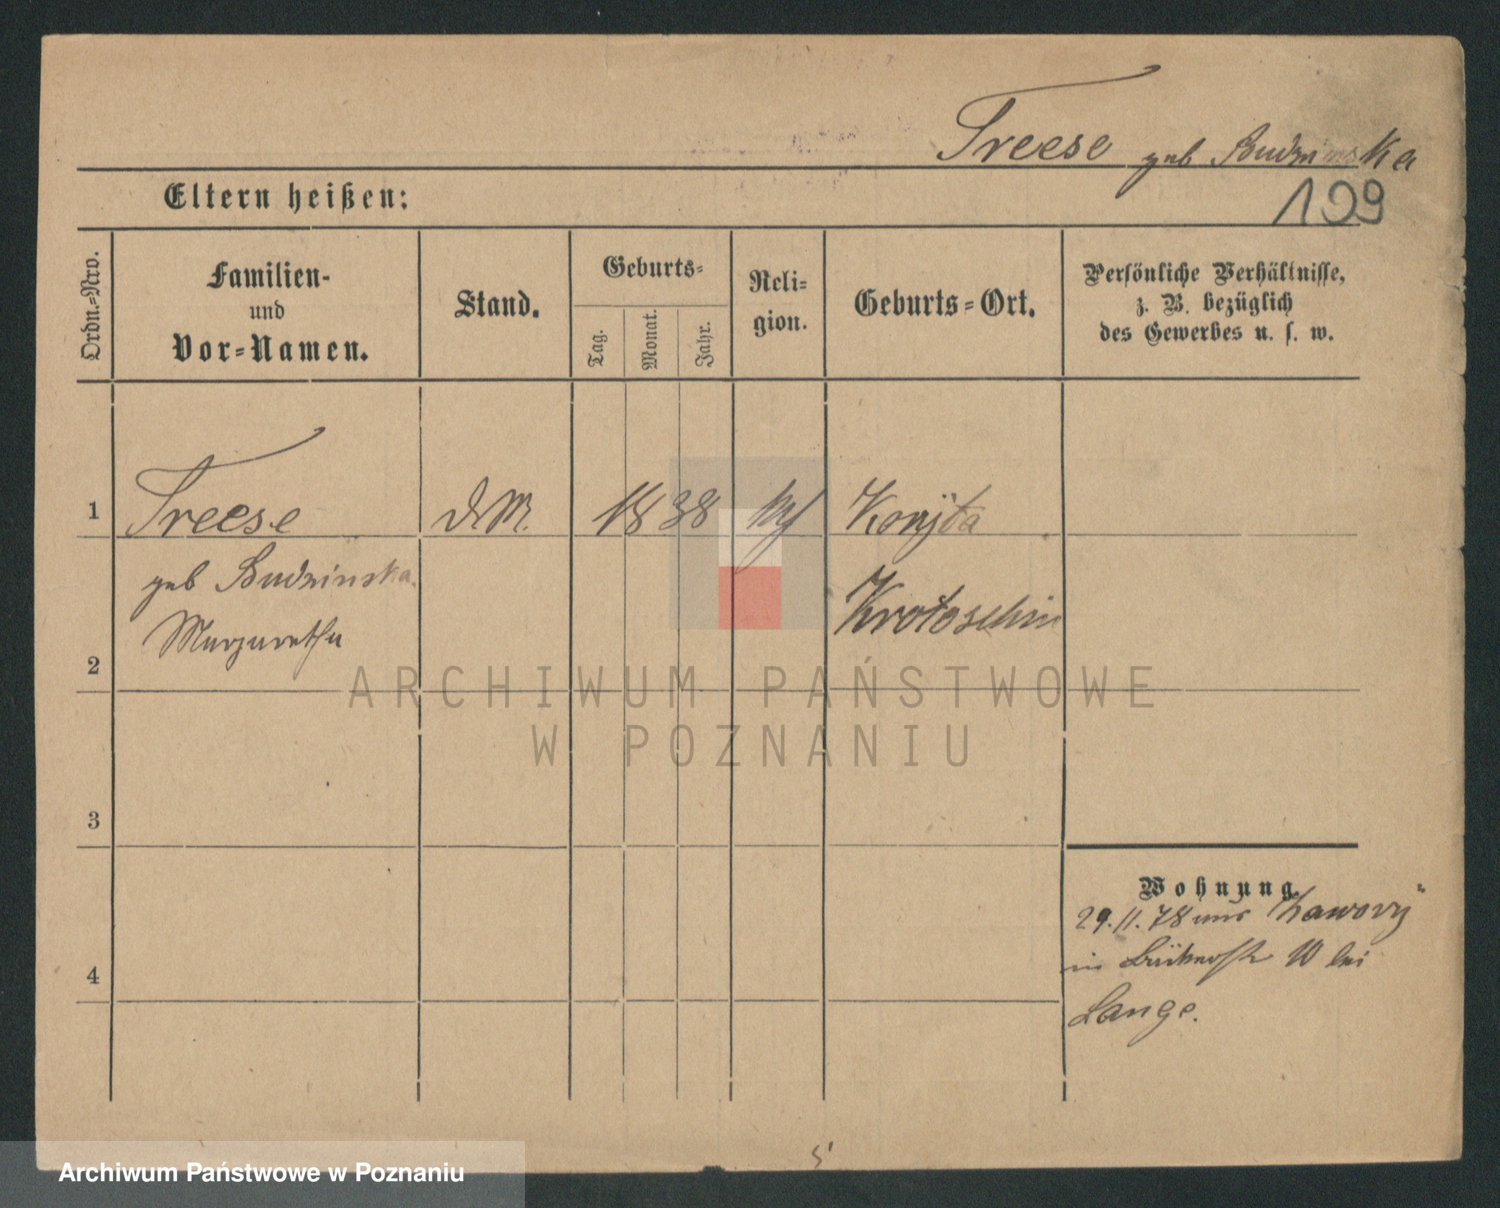 Treese geb Budzinska
199
Eltern heißen:
Ordn.-Nro.
Familien-
und
Vor-Namen.
Stand.
Geburts-
Tag.
Monat.
Jahr.
Reli-
gion.
Geburts-Ort.
Persönliche Verhältnisse,
z. B. bezüglich
des Gewerbes u. s. w.
1
Treese
1838
geb Budzinska
Margaretha
Krotoschin
2
ARCHIWUM PAŃSTWOWE
W POZNANIU
3
Wohnung
29.11.78 aus
in 10 bei
Lange.
4
Archiwum Państwowe w Poznaniu